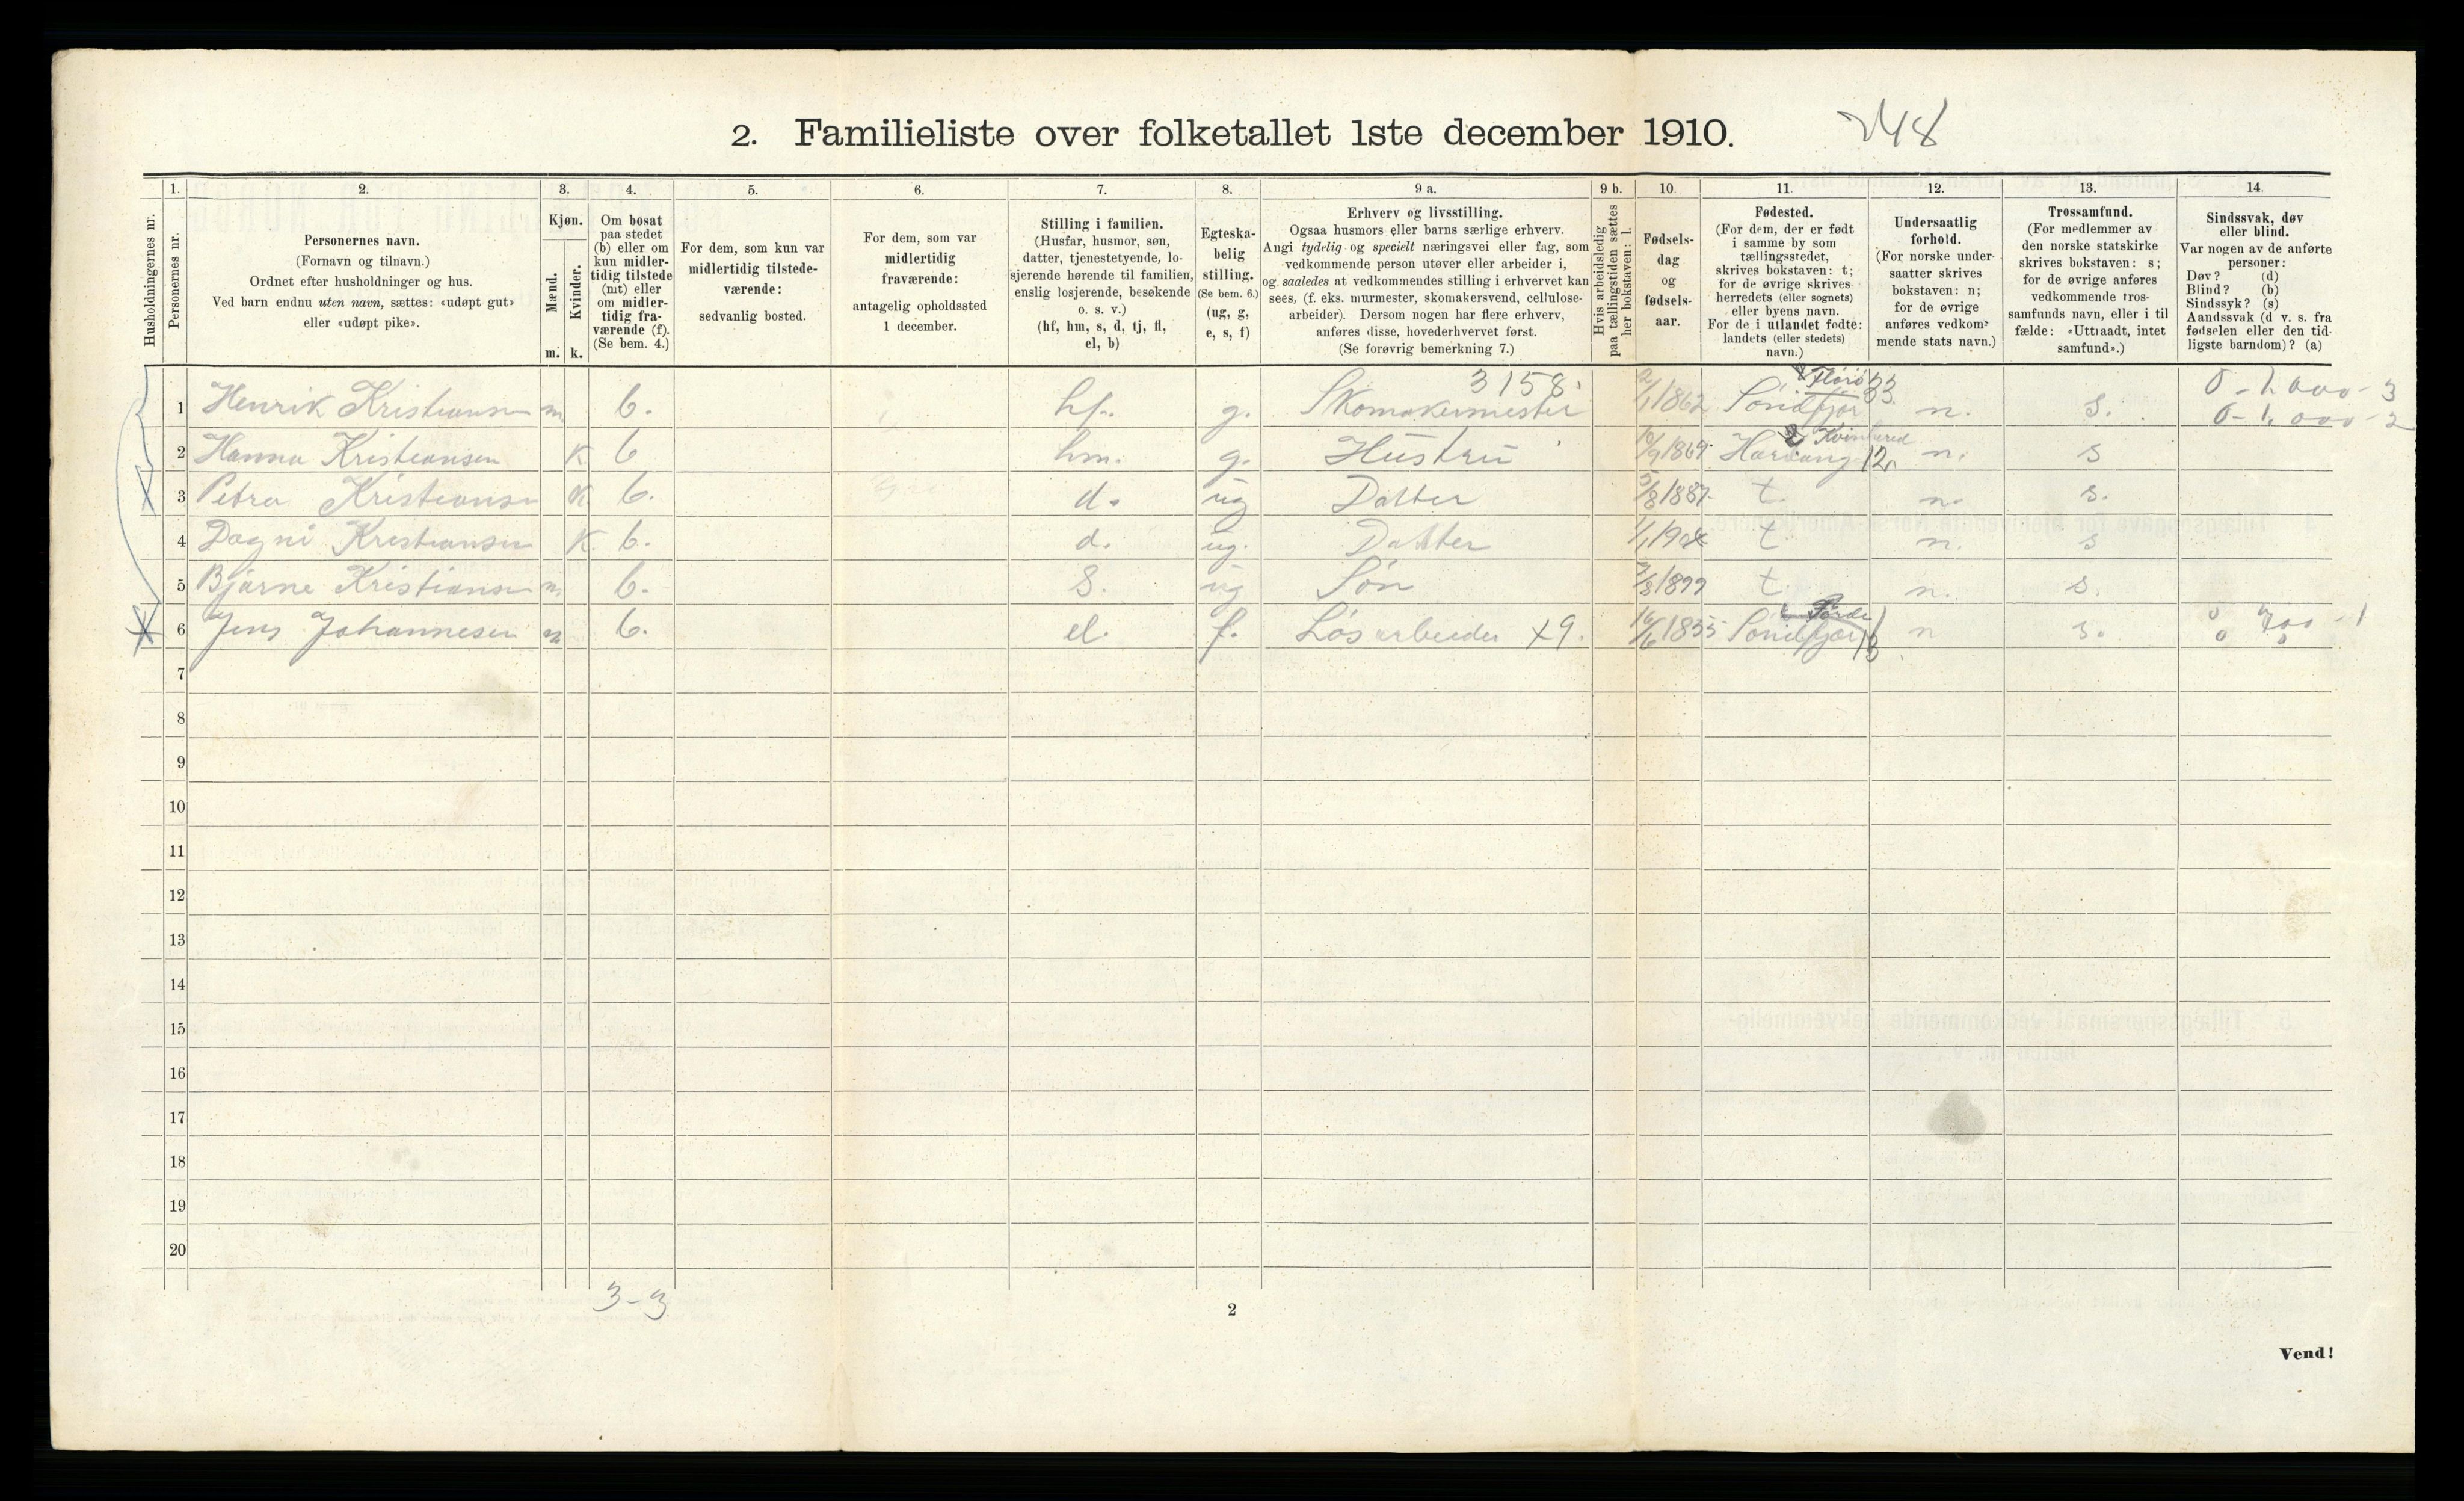 2. Familieliste over folketallet 1ste december 1910. 248
1. 2. 3. 4. 5. 6. 7. 8. 9 a. 9 b. 10. 11. 12. 13. 14.
Husholdningernes nr.
Personernes nr.
Personernes navn.
(Fornavn og tilnavn.)
Ordnet efter husholdninger og hus.
Ved barn endnu uten navn, sættes: «udøpt gut»
eller «udøpt pike».
Kjøn.
Mænd.
Kvinder.
m. k.
Om bosat
paa stedet
(b) eller om
kun midler-
tidig tilstede
(mt) eller
om midler-
tidig fra-
værende (f).
(Se bem. 4.)
For dem, som kun var
midlertidig tilstede-
værende:
sedvanlig bosted.
For dem, som var
midlertidig
fraværende:
antagelig opholdssted
1 december.
Stilling i familien.
(Husfar, husmor, søn,
datter, tjenestetyende, lo-
sjerende hørende til familien,
enslig losjerende, besøkende
o. s. v.)
(hf, hm, s, d, tj, fl,
el, b)
Egteska-
belig
stilling.
(Se bem. 6.)
(ug, g,
e, s, f)
Erhverv og livsstilling.
Ogsaa husmors eller barns særlige erhverv.
Angi tydelig og specielt næringsvei eller fag, som
vedkommende person utøver eller arbeider i,
og saaledes at vedkommendes stilling i erhvervet kan
sees, (f. eks. murmester, skomakersvend, cellulose-
arbeider). Dersom nogen har flere erhverv,
anføres disse, hovederhvervet først.
(Se forøvrig bemerkning 7.)
Hvis arbeidsledig
paa tællingstiden sættes
her bokstaven: l.
Fødsels-
dag
og
fødsels-
aar.
Fødested.
(For dem, der er født
i samme by som
tællingsstedet,
skrives bokstaven: t;
for de øvrige skrives
herredets (eller sognets)
eller byens navn.
For de i utlandet fødte:
landets (eller stedets)
navn.)
Undersaatlig
forhold.
(For norske under-
saatter skrives
bokstaven: n;
for de øvrige
anføres vedkom-
mende stats navn.)
Trossamfund.
(For medlemmer av
den norske statskirke
skrives bokstaven: s;
for de øvrige anføres
vedkommende tros-
samfunds navn, eller i til
fælde: «Uttraadt, intet
samfund».)
Sindssvak, døv
eller blind.
Var nogen av de anførte
personer:
Døv? (d)
Blind? (b)
Sindssyk? (s)
Aandssvak (d v. s. fra
fødselen eller den tid-
ligste barndom)? (a)
3158. Florø 33 0-1000-3
1 Henrik Kristiansen m. b. hf. g. Skomakermester 2/1 1862 Søndfjor n. s. 0-1,000-2
2 Hanna Kristiansen K. b hm. g. Hustru 1869 12. n. s
3 Petra Kristiansen K b. d. ug Datter 5/8 1887 t. n. s.
4 Dagni Kristiansen K. b. d. ug. Datter 1/1 t n. s
5 Bjarne Kristiansen m. b. s. ug Søn 1899 t. n. s.
Førde
6 Jens Johannesen m b. el. f. Løsarbeider X9. 16/6 1855 Søndfjor 13 n s. 0 700-1
7
8
9
10
11
12
13
14
15
16
17
18
19
20
3-3
2
Vend!